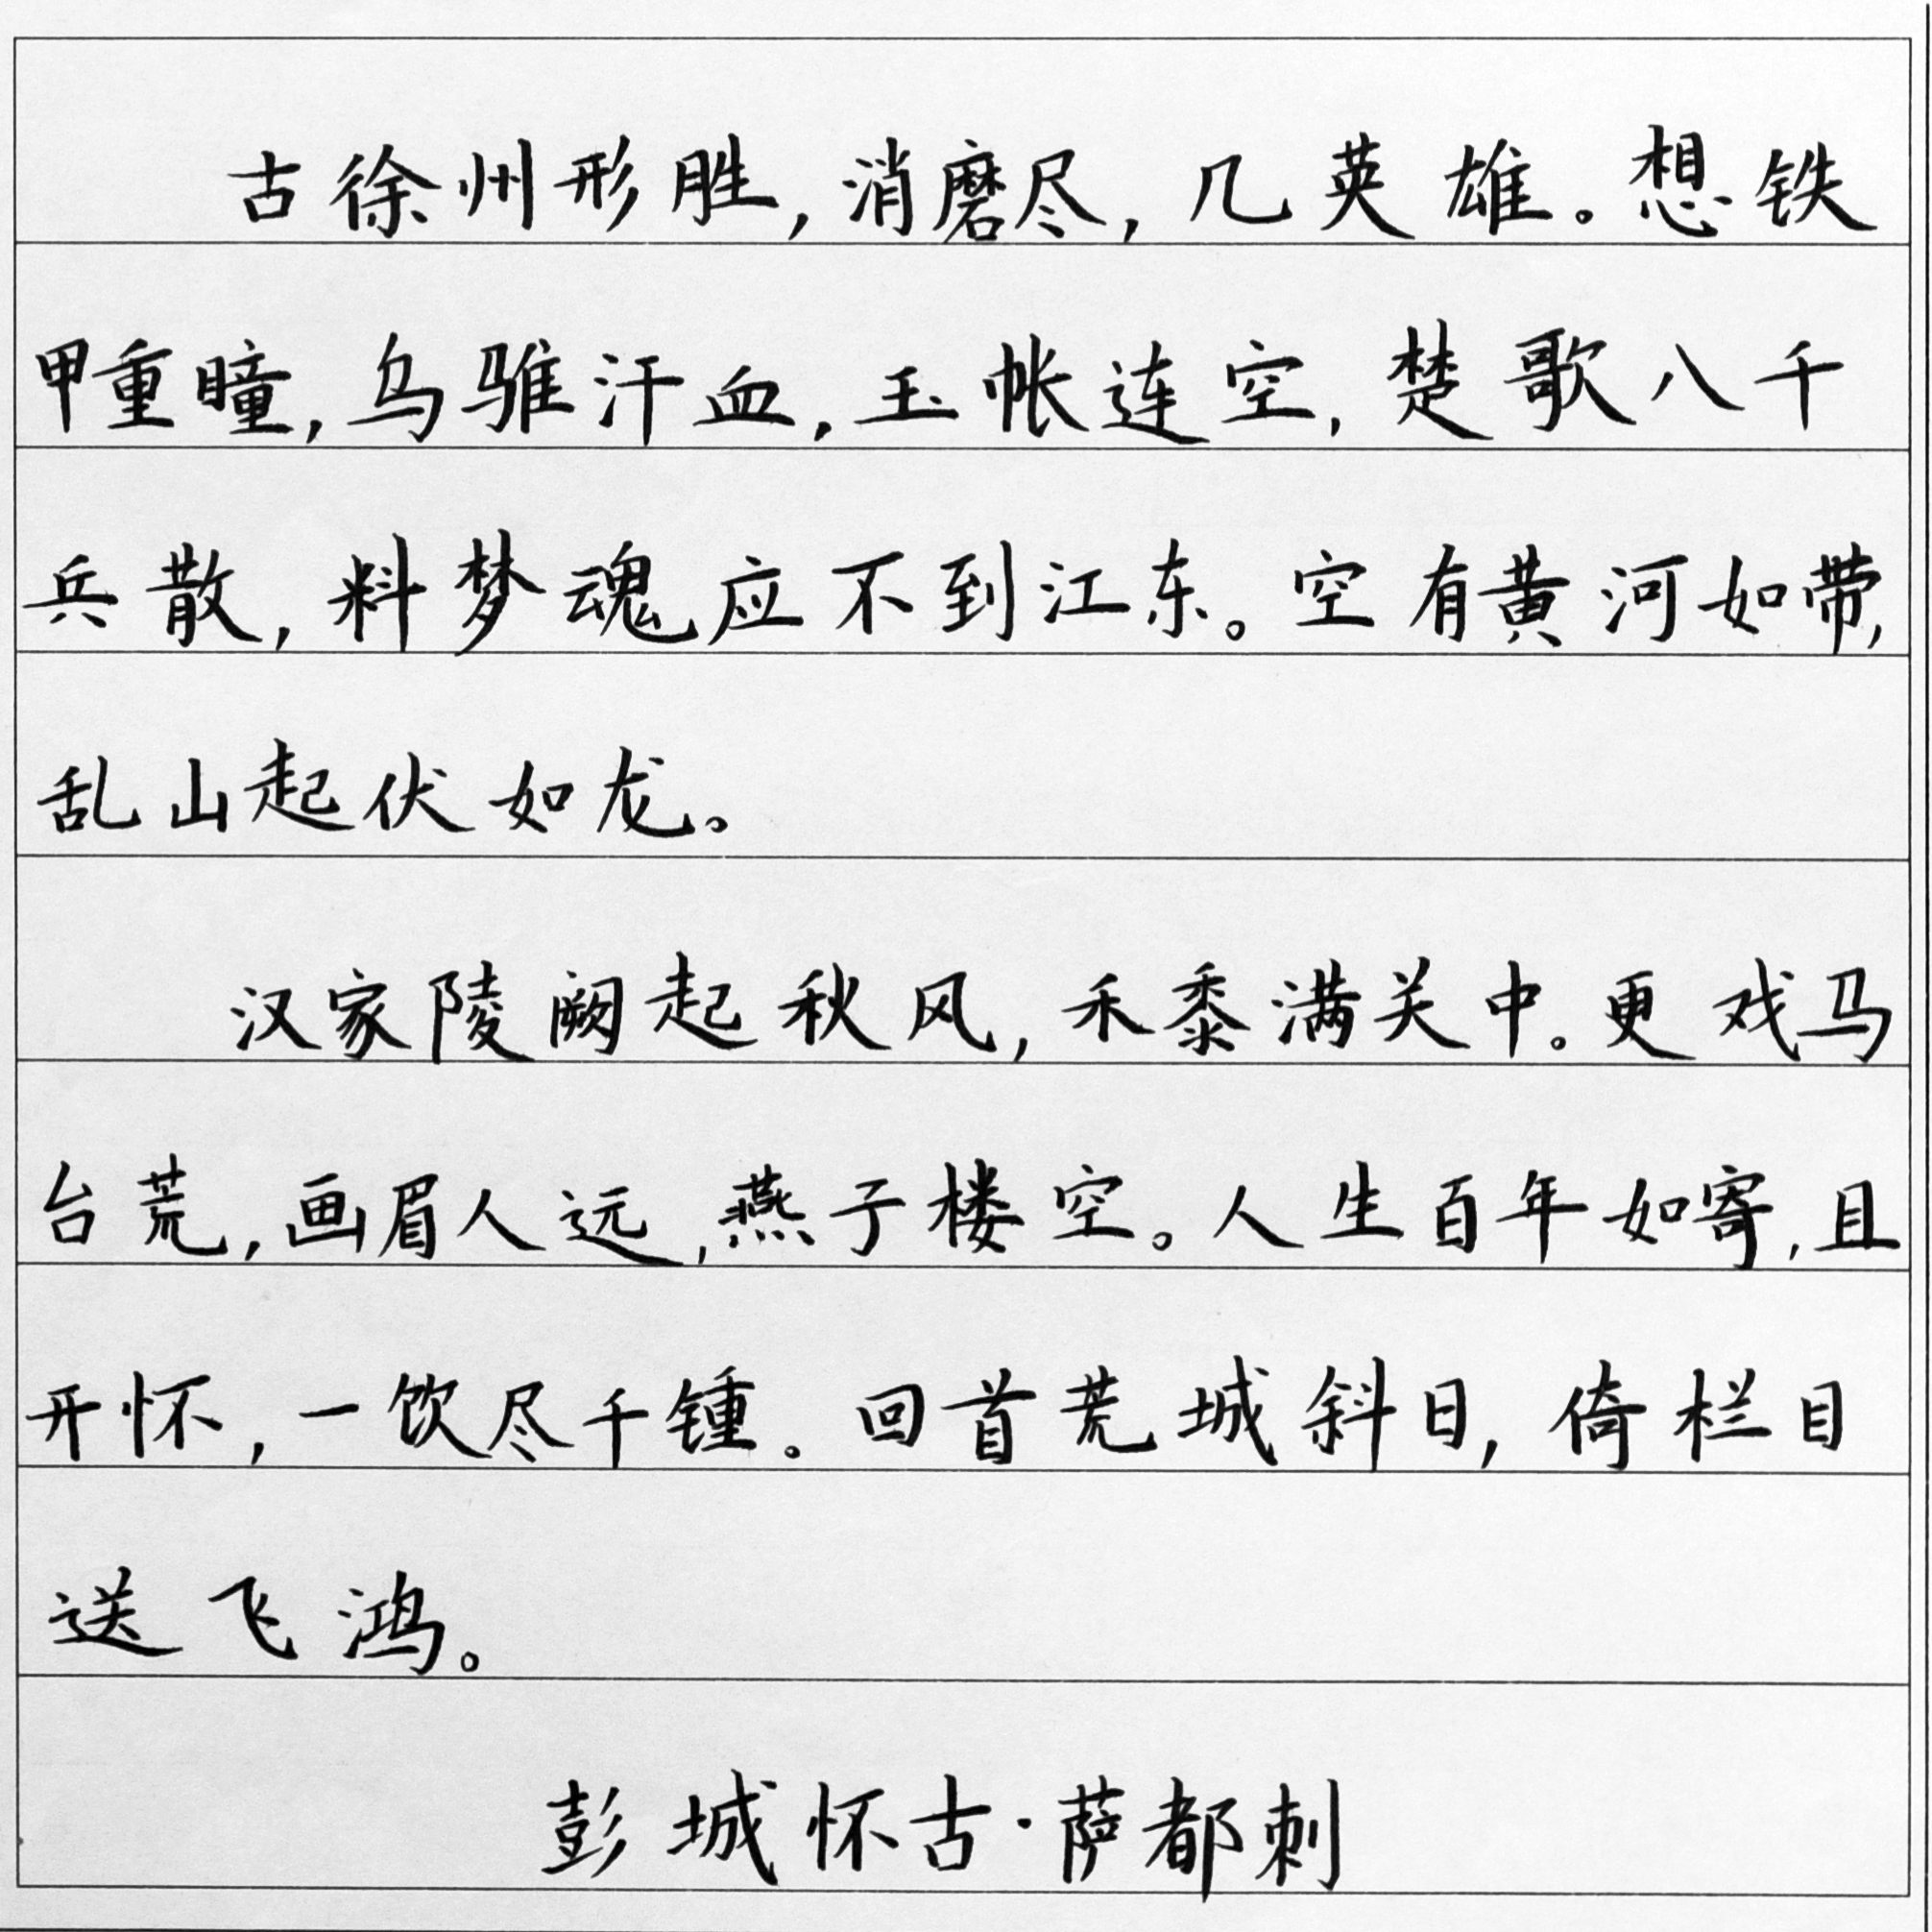 古徐州形胜,消磨尽,几英雄。想铁
甲重瞳,乌骓汗血,玉帐连空,楚歌八千
兵散,料梦魂应不到江东。空有黄河如带,
乱山起伏如龙。
汉家陵阙起秋风,禾黍满关中。更戏马
台荒,画眉人远,燕子楼空。人生百年如寄,且
开怀,一饮尽千锺。回首荒城斜日,倚栏目
送飞鸿。
彭城怀古·萨都剌